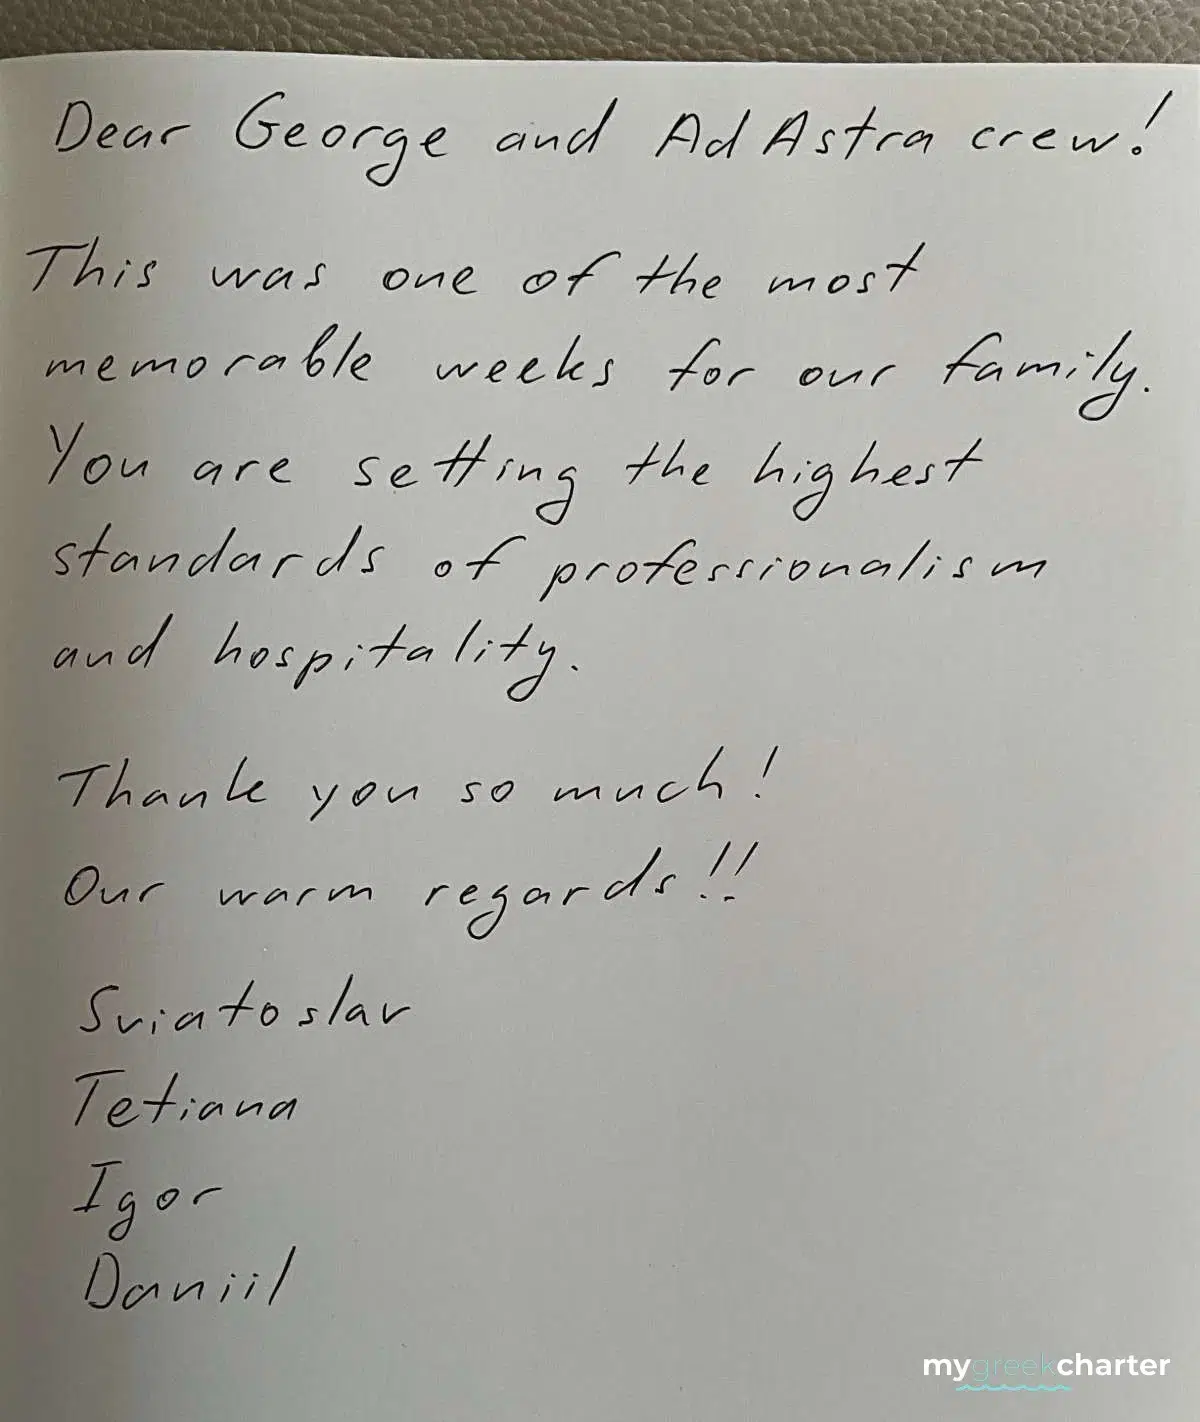 Dear George and Ad Astra crew!
This was one of the most
memorable weeks for our family.
You are setting the highest
standards of professionalism
and hospitality.
Thank you so much!
Our warm regards!!
Sviatoslav
Tetiana
Igor
Daniil
mygreekcharter